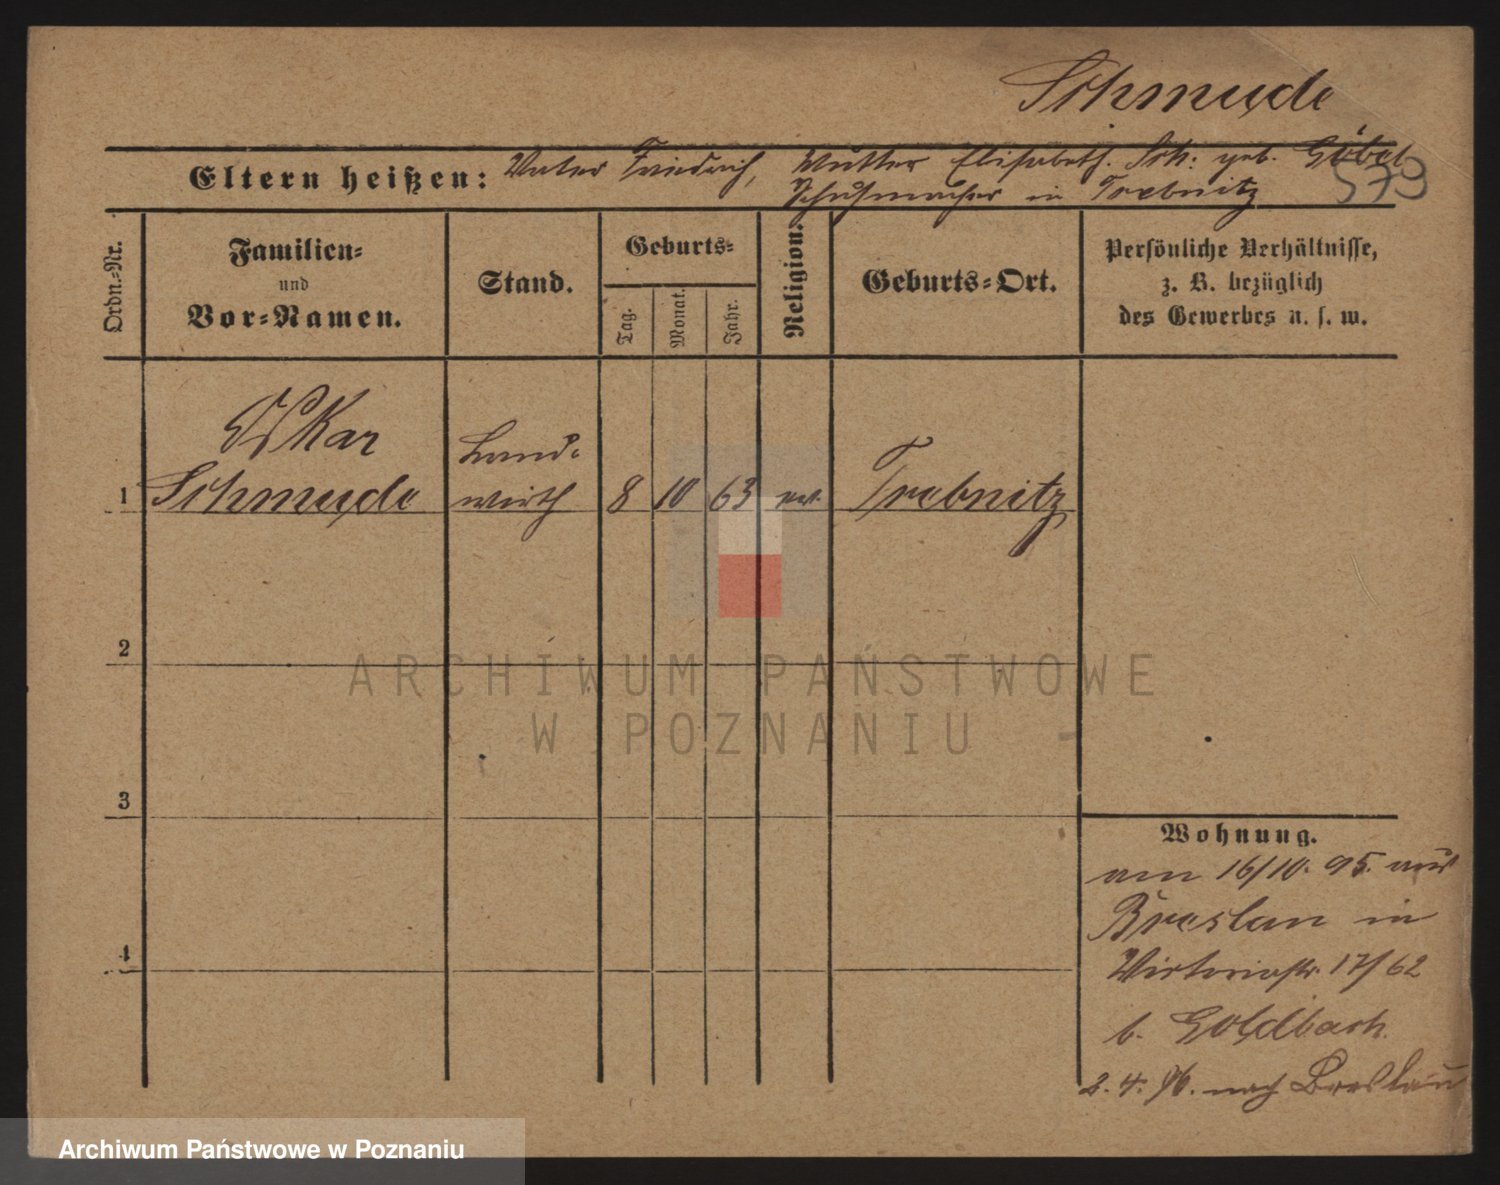 Schmude
Eltern heißen: Vater Friedrich, Mutter Elisabeth Sch: geb. Göbel
Schuhmacher in Trebnitz
573
Ordn.=Nr.
Familien=
und
Vor=Namen.
Stand.
Geburts=
Tag.
Monat.
Jahr.
Religion.
Geburts=Ort.
Persönliche Verhältnisse,
z. B. bezüglich
des Gewerbes u. s. w.
Oskar
Schmude
Land=
wirth
1
8
10
63
ev.
Trebnitz
2
ARCHIWUM PAŃSTWOWE
W POZNANIU
3
4
Wohnung.
am 16/10. 95. aus
Breslau in
Victoriastr. 17/62
b. Goldbach.
2. 4. 96. nach Breslau
Archiwum Państwowe w Poznaniu